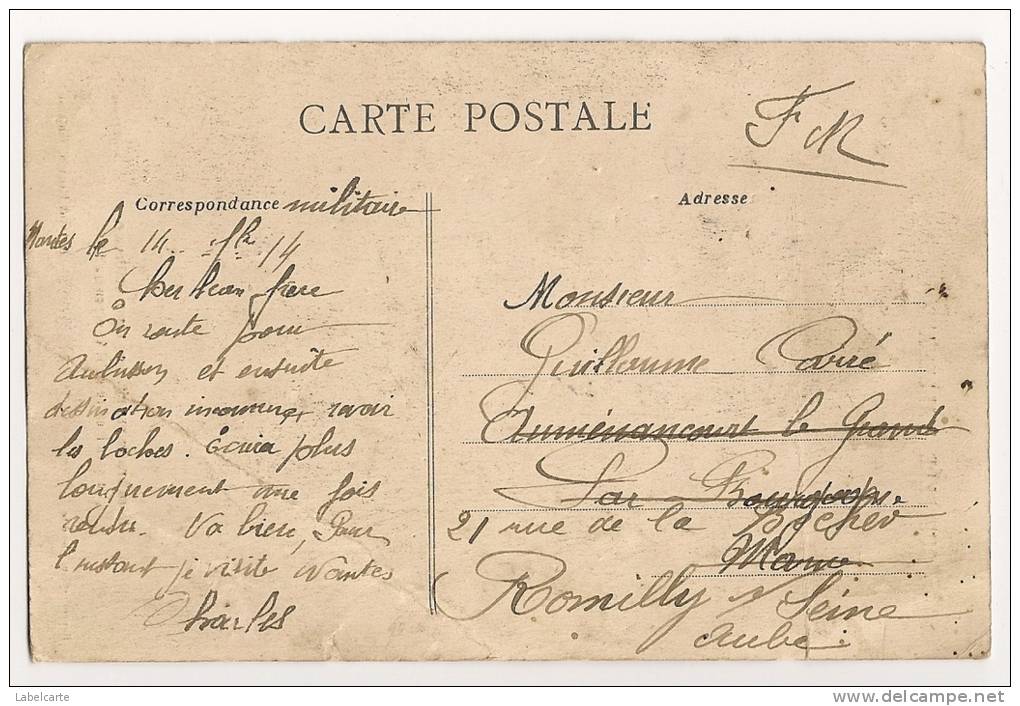 CARTE POSTALE
FM
Correspondance militaire
Adresse
Nantes le 14 14
Cher frère
En route pour
Aubusson et ensuite
destination inconnue, revoir
les boches. Écrirai plus
longuement une fois
rendu. Va bien, Pour
l'instant je visite Nantes
Charles
Monsieur
Guillaume Carré
Auménancourt le Grand
Par Bourgogne
21 rue de la
Marne
Romilly s/ Seine
Aube
Labelcarte
http://www.delcampe.net